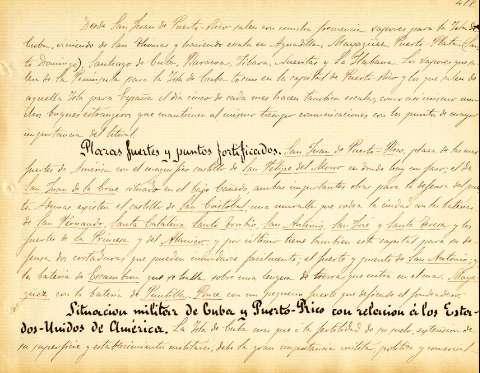 418
Desde San Juan de Puerto-Rico salen con mucha frecuencia vapores para la Isla de
Cuba, viniendo de San Thomas y haciendo escala en Aguadilla, Mayagüez, Puerto Plata (San-
to Domingo), Santiago de Cuba, Baracoa, Gibara, Nuevitas y La Habana. Los vapores que sa-
len de la Península para la Isla de Cuba tocan en la capital de Puerto-Rico y los que salen de
aquella Isla para España el día cinco de cada mes hacen tambien escala, como así mismo mu-
chos buques extranjeros que mantienen al mismo tiempo comunicaciones con los puntos de mayor
importancia del litoral.
Plazas fuertes y puntos fortificados. San Juan de Puerto-Rico, plaza de las mas
fuertes de América con el magnífico castillo de San Felipe del Morro en donde hay un faro; el de
San Juan de la Cruz situado en el bajo Cañuelo, ambas importantes obras para la defensa del puer-
to. Ademas existen el castillo de San Cristobal, una muralla que rodea la ciudad con las baterías
de San Fernando, Santa Catalina, Santo Toribio, San Antonio, San José y Santa Teresa y los
fuertes de la Princesa y del Abanico y por último tiene tambien esta capital para su de-
fensa dos cortaduras que pueden inundarse facilmente; el fuerte y puente de San Antonio; y
la batería de Escambron que se halla sobre una lengua de tierra que entra en el mar. Maya-
güez con la batería de Puntilla. Ponce con un pequeño fuerte que defiende el fondeadero.
Situacion militar de Cuba y Puerto-Rico con relacion á los Esta-
dos-Unidos de América. La Isla de Cuba une que á la fertilidad de su suelo, extension de
su superficie y establecimientos militares, debe la gran importancia militar, política y comercial